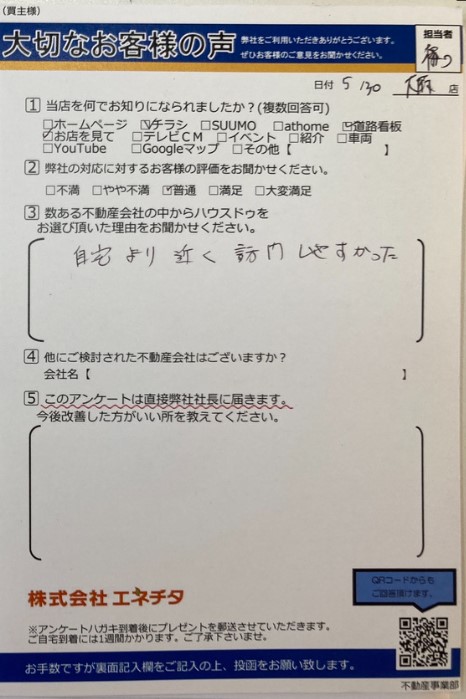 (買主様)
大切なお客様の声
弊社をご利用いただきありがとうございます。
ぜひお客様のご意見をお聞かせください。
担当者
日付 5/30 店
1 当店を何でお知りになられましたか？(複数回答可)
□ホームページ ☑チラシ □SUUMO □athome ☑道路看板
☑お店を見て □テレビCM □イベント □紹介 □車両
□YouTube □Googleマップ □その他【 】
2 弊社の対応に対するお客様の評価をお聞かせください。
□不満 □やや不満 ☑普通 □満足 □大変満足
3 数ある不動産会社の中からハウスドゥを
お選び頂いた理由をお聞かせください。
自宅より近く訪問しやすかった
4 他にご検討された不動産会社はございますか？
会社名【 】
5 このアンケートは直接弊社社長に届きます。
今後改善した方がいい所を教えてください。
株式会社 エネチタ
QRコードからも
ご回答頂けます。
※アンケートハガキ到着後にプレゼントを郵送させていただきます。
ご自宅到着には1週間かかります。ご了承下さいませ。
お手数ですが裏面記入欄をご記入の上、投函をお願い致します。
不動産事業部